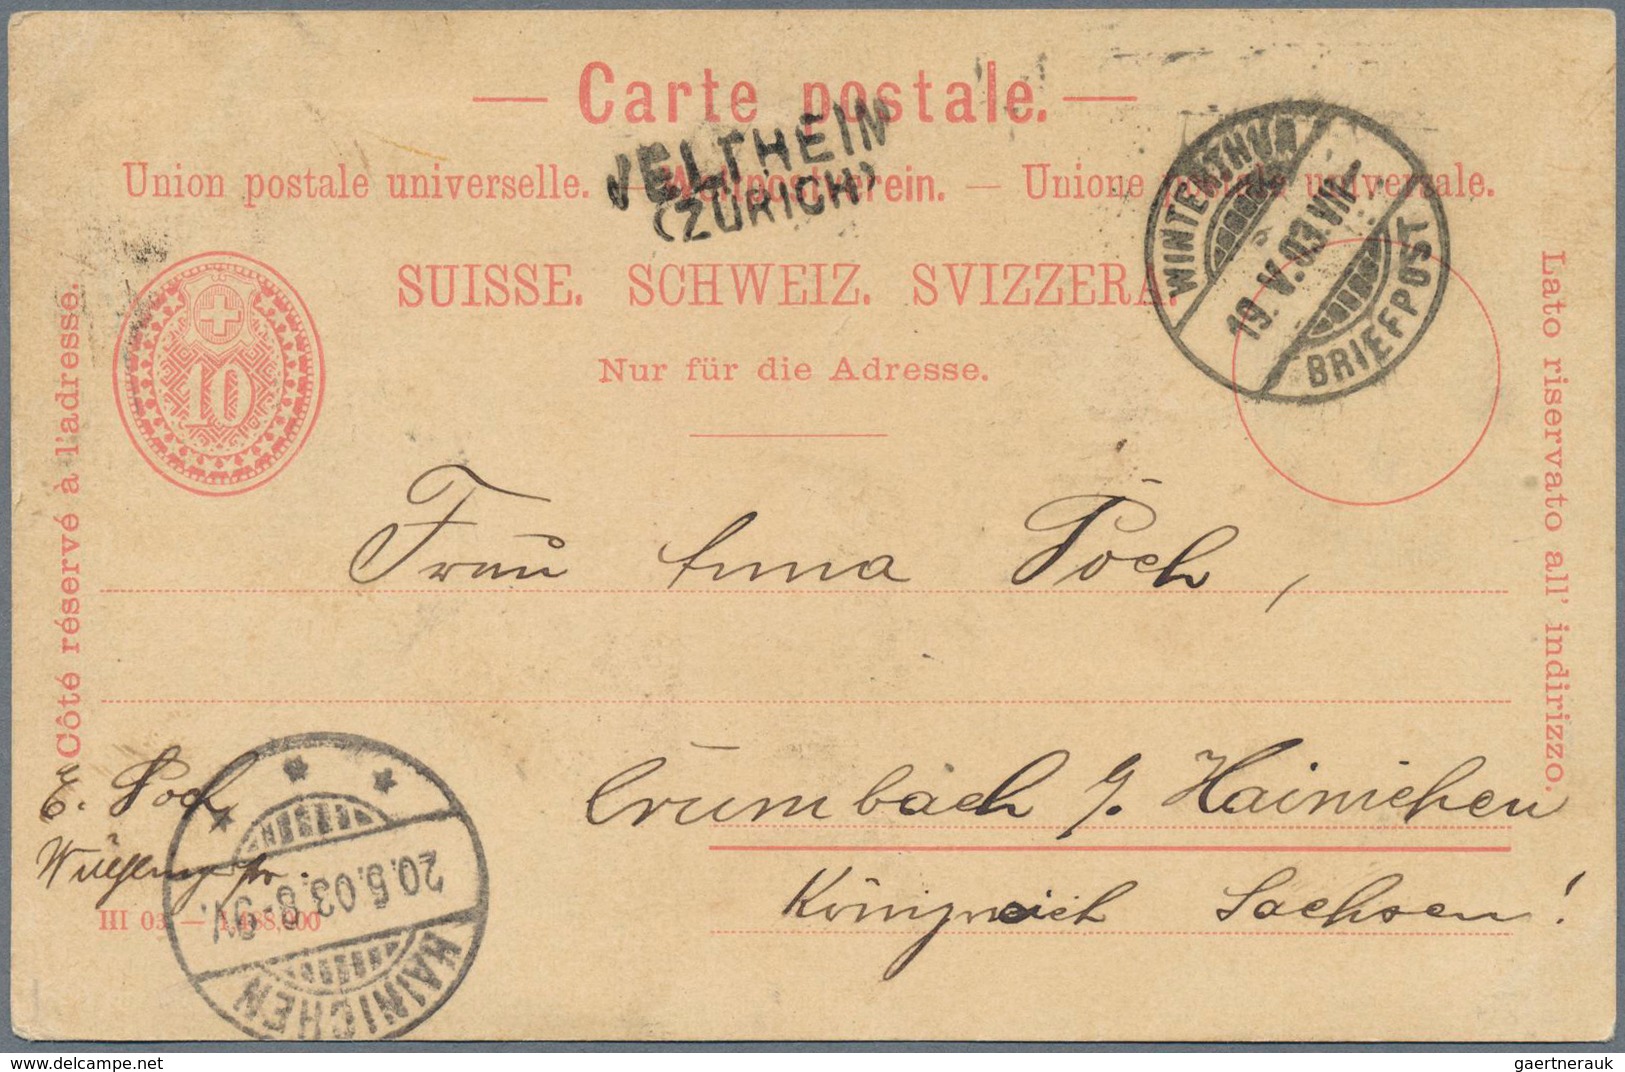 — Carte postale. —
VELTHEIM
(ZÜRICH)
Union postale universelle. — Weltpostverein. — Unione postale universale.
WINTERTHUR
19.V.03.VII-
BRIEFPOST
SUISSE. SCHWEIZ. SVIZZERA.
Nur für die Adresse.
10
Côté réservé à l'adresse.
Lato riservato all' indirizzo.
Frau Anna Poch,
Crumbach b/ Hainichen
Königreich Sachsen!
E. Poch
HAINICHEN
20.5.03.8-9V.
III 03 — 1,488,000
gaertnerauk
www.delcampe.net